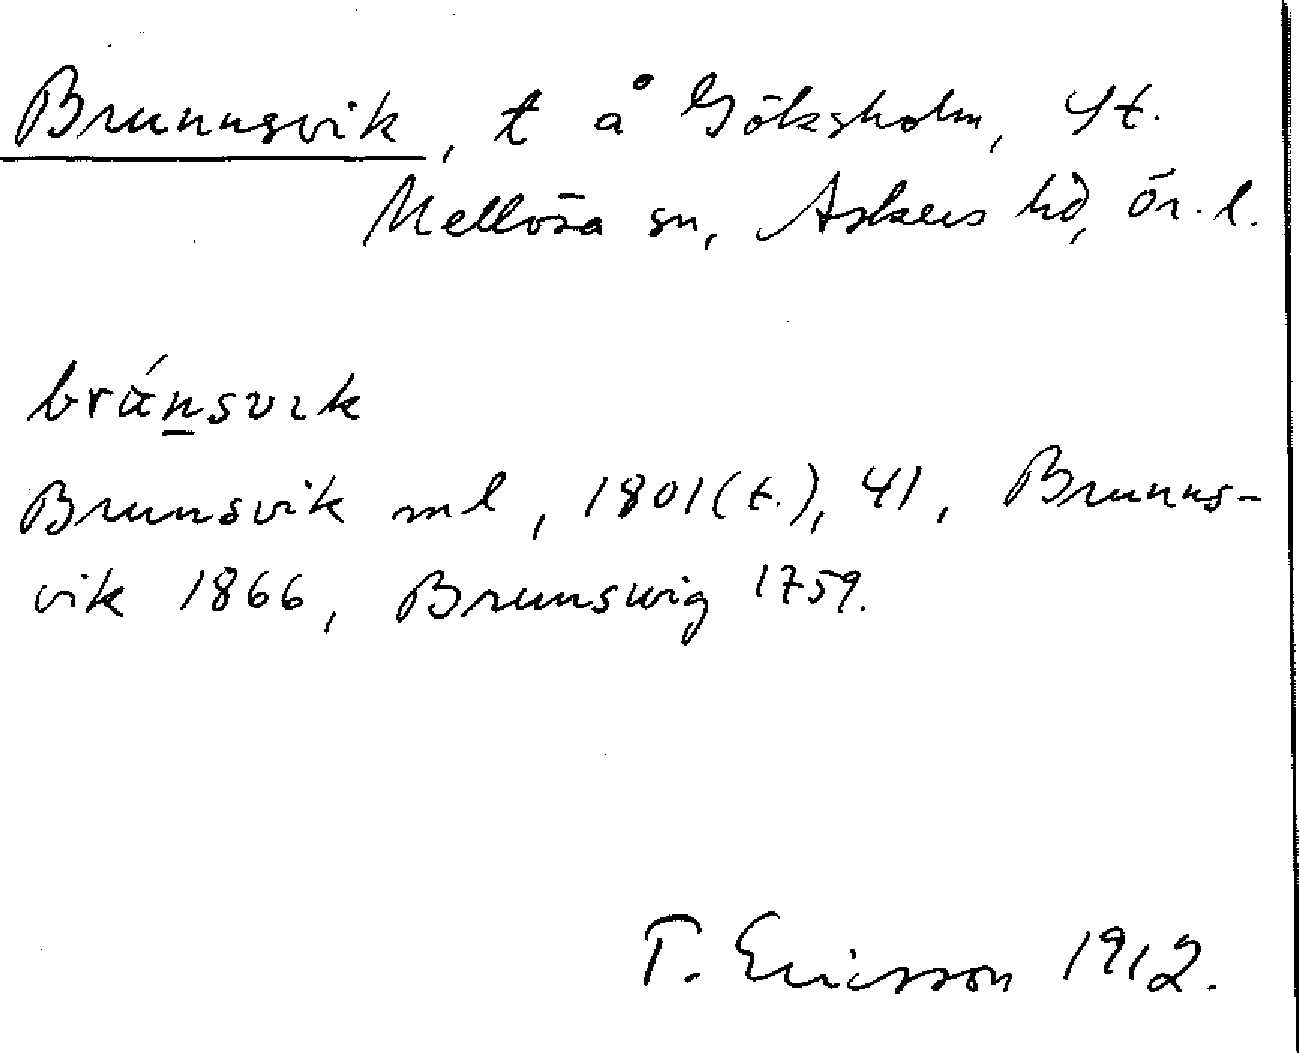 Brunnsvik, t å Göksholm, St.
Mellösa sn, Askers hd, Ör. l.
bránsvik
Brunsvik ml, 1801(t.), 41, Brunns-
vik 1866, Brunswig 1759.
T. Ericsson 1912.